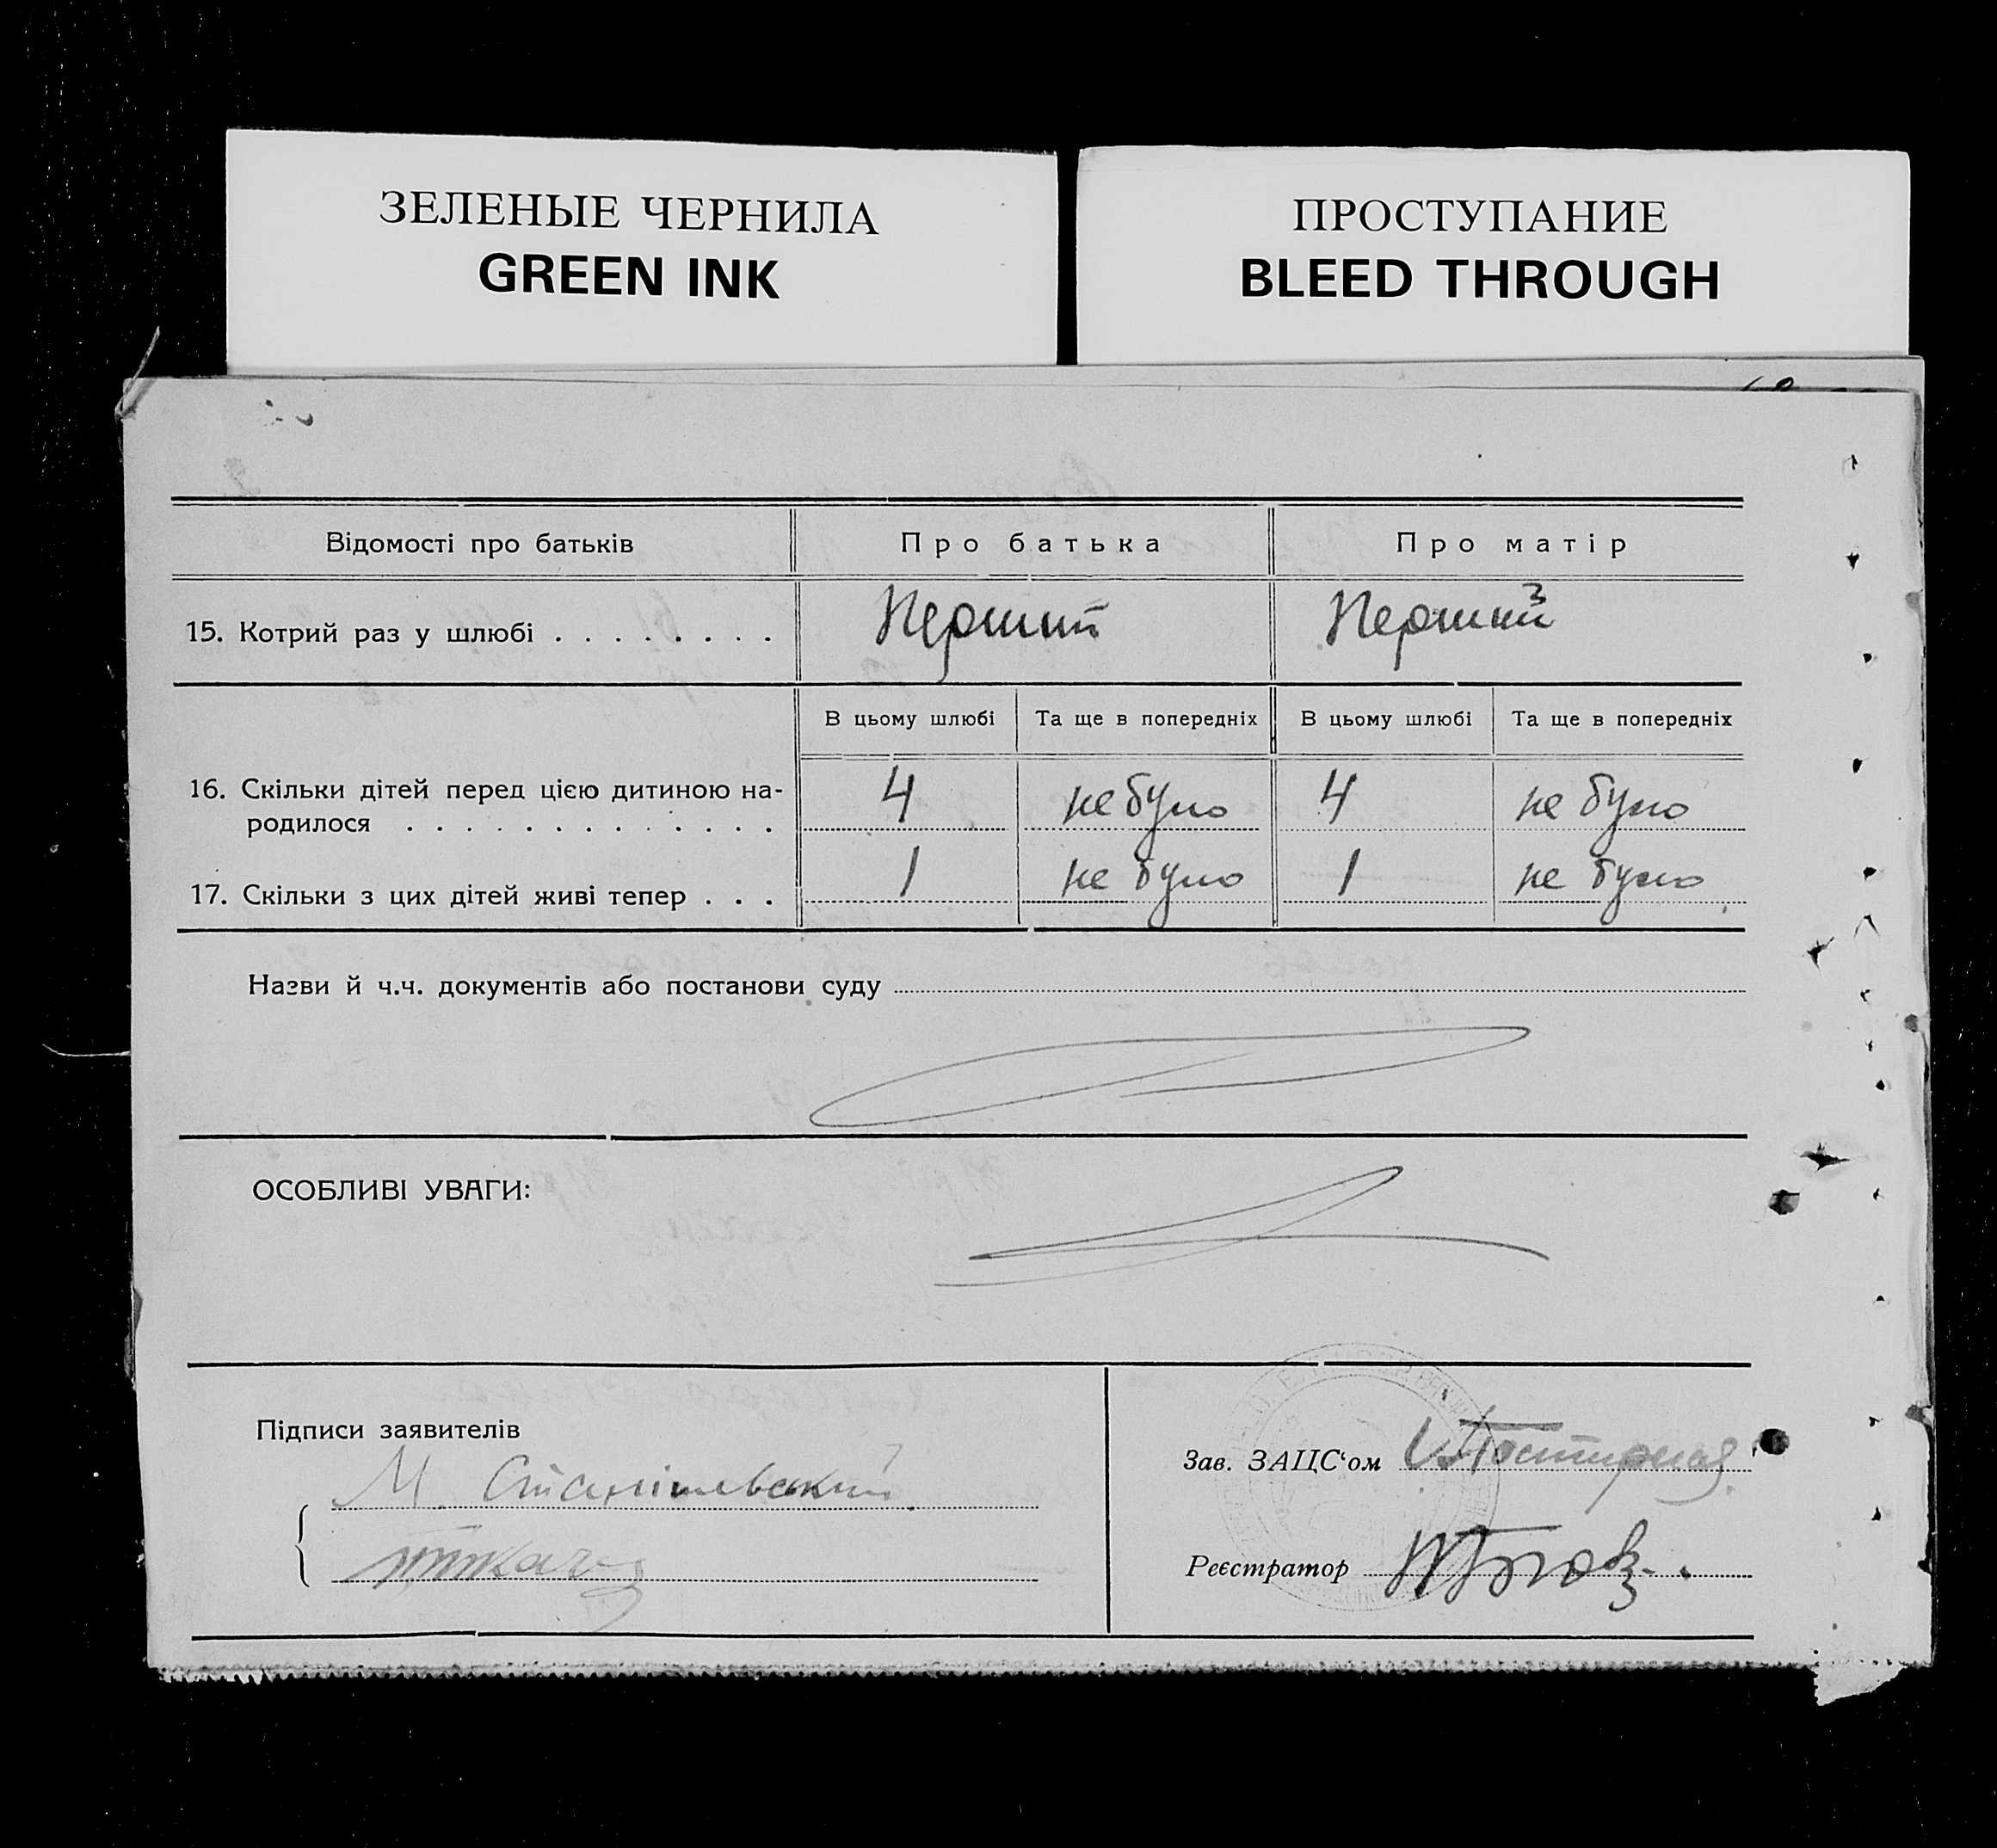 ЗЕЛЕНЫЕ ЧЕРНИЛА
GREEN INK
ПРОСТУПАНИЕ
BLEED THROUGH
Відомості про батьків Про батька Про матір
15. Котрий раз у шлюбі . . . . . . . . Перший Перший
В цьому шлюбі Та ще в попередніх В цьому шлюбі Та ще в попередніх
16. Скільки дітей перед цією дитиною на-
родилося . . . . . . . . . . . . . 4 не було 4 не було
17. Скільки з цих дітей живі тепер . . . 1 не було 1 не було
Назви й ч.ч. документів або постанови суду
ОСОБЛИВІ УВАГИ:
Підписи заявителів
М. Станішевський
Зав. ЗАЦС‘ом
Реєстратор